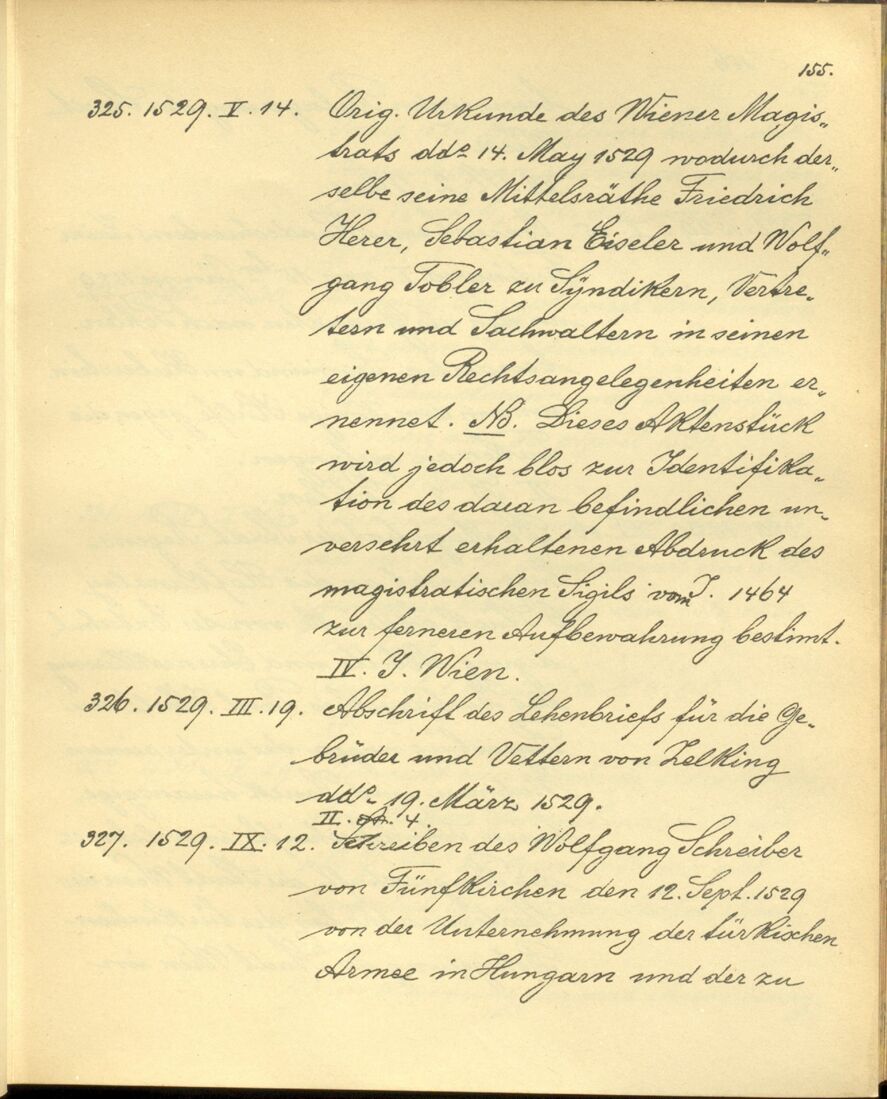 155.
325. 1529. V. 14. Orig. Urkunde des Wiener Magis„
trats ddo 14. May 1529 wodurch der„
selbe seine Mittelsräthe Friedrich
Herer, Sebastian Eiseler und Wolf„
gang Tobler zu Syndikern, Vertre„
tern und Sachwaltern in seinen
eigenen Rechtsangelegenheiten er„
nennet. NB. Dieses Aktenstück
wird jedoch blos zur Identifika„
tion des daran befindlichen un„
versehrt erhaltenen Abdruck des
magistratischen Sigils vom J. 1464
zur ferneren Aufbewahrung bestimt.
IV. J. Wien.
326. 1529. III. 19. Abschrift des Lehenbriefs für die Ge„
brüder und Vettern von Zelking
ddo. 19. März 1529.
II. 4.
327. 1529. IX. 12. Schreiben des Wolfgang Schreiber
von Fünfkirchen den 12. Sept. 1529
von der Unternehmung der türkischen
Armee in Hungarn und der zu